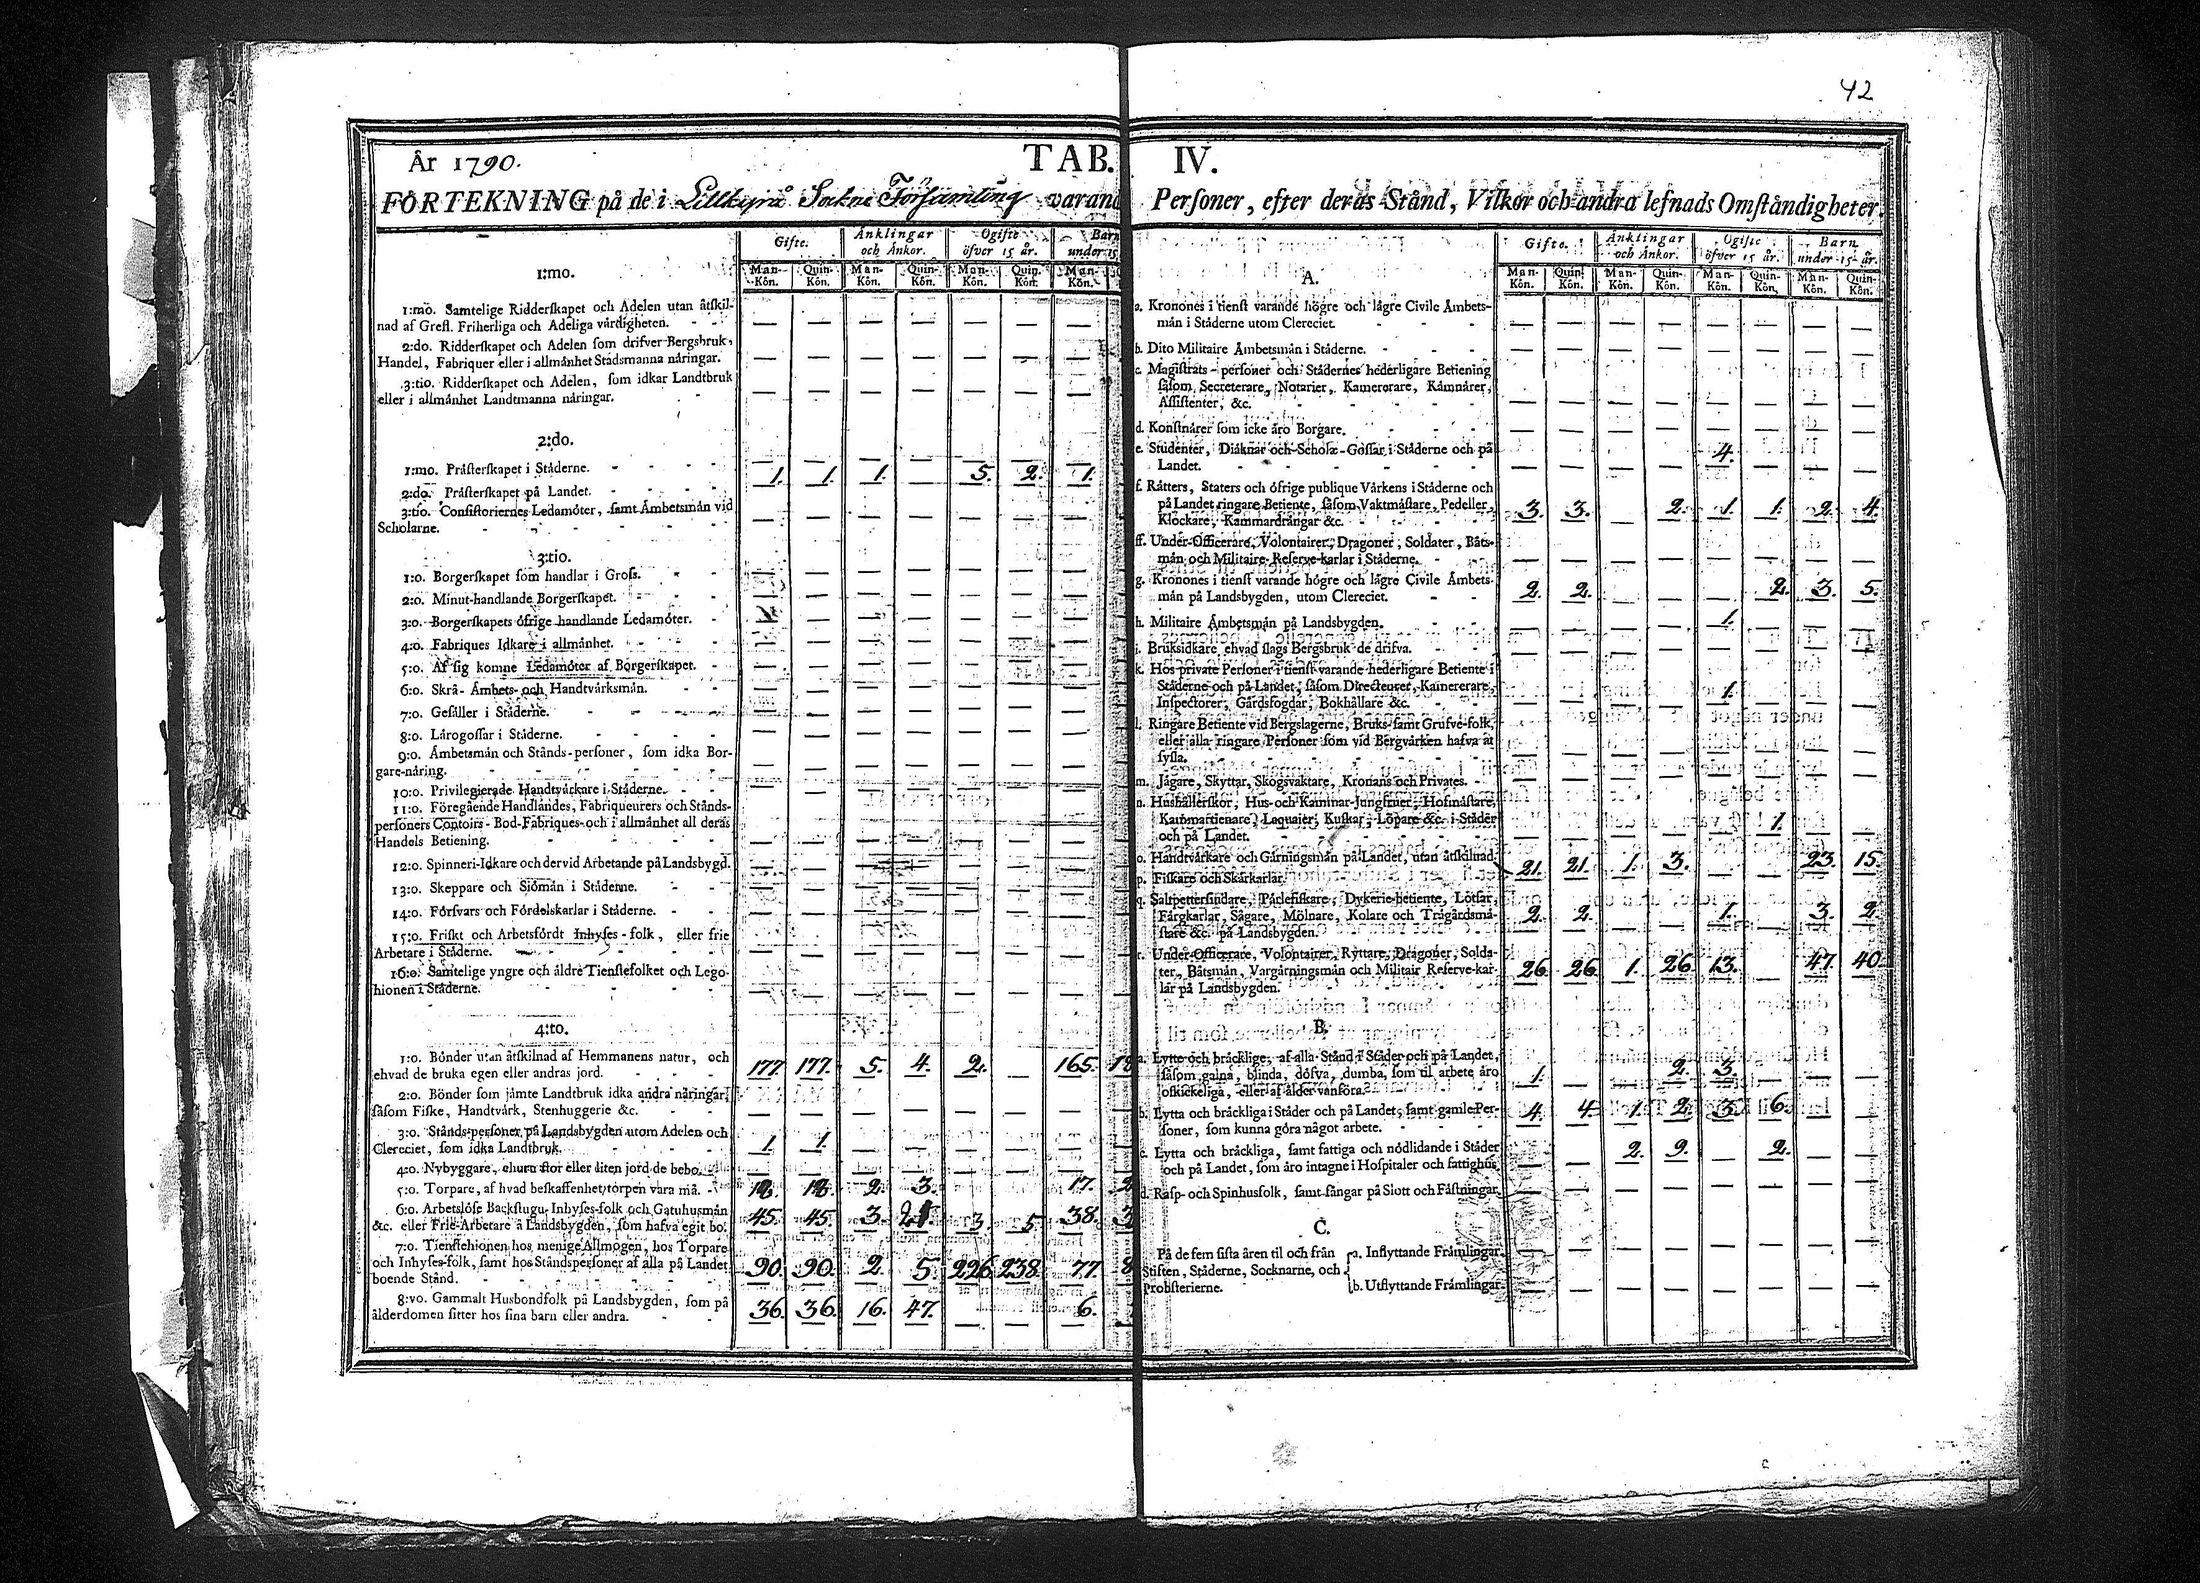 42
År 1790. TAB. IV.
FÖRTEKNING på de i Lillkyrå Sockne Församling varand Personer, efter deras Stånd, Vilkor och andra lefnads Omståndigheter.
Gifte. Anklingar och Ånkor. Ogifte öfver 15 år. Barn under 15
Man-Kön. Quin-Kön. Man-Kön. Quin-Kön. Man-Kön. Quin-Kön. Man-Kön.
1:mo.
1:mo. Samtelige Ridderſkapet och Adelen utan åtſkil-
nad af Grefl. Friherliga och Adeliga vårdigheten. — — — — — — —
2:do. Ridderſkapet och Adelen ſom drifver Bergsbruk,
Handel, Fabriquer eller i allmånhet Stadsmanna nåringar. — — — — — — —
3:tio. Ridderſkapet och Adelen, ſom idkar Landtbruk
eller i allmånhet Landtmanna nåringar. — — — — — — —
2:do.
1:mo. Pråſterſkapet i Ståderne. — — — — — — —
2:do. Pråſterſkapet på Landet. 1. 1. 1. — 5. 2. 1.
3:tio. Conſiſtoriernes Ledamöter, ſamt Åmbetsmån vid
Scholarne. — — — — — — —
3:tio.
1:o. Borgerſkapet ſom handlar i Groſs. — — — — — — —
2:o. Minut-handlande Borgerſkapet. — — — — — — —
3:o. Borgerſkapets öfrige handlande Ledamöter. — — — — — —
4:o. Fabriques Idkare i allmånhet. — — — — — — —
5:o. Af ſig komne Ledamöter af Borgerſkapet. — — — — — — —
6:o. Skrå- Åmbets- och Handtvårksmån. — — — — — — —
7:o. Geſåller i Ståderne. — — — — — — —
8:o. Lårogoſſar i Ståderne. — — — — — — —
9:o. Åmbetsmån och Stånds-perſoner, ſom idka Bor-
gare-nåring. — — — — — — —
10:o. Privilegierade Handtvårkare i Ståderne. — — — — — — —
11:o. Föregående Handlandes, Fabriqueurers och Stånds-
perſoners Contoirs- Bod-Fabriques-och i allmånhet all deras
Handels Betiening. — — — — — — —
12:o. Spinneri-Idkare och dervid Arbetande på Landsbygd. — — — — — — —
13:o. Skeppare och Sjömån i Ståderne. — — — — — — —
14:o. Förſvars och Fördelskarlar i Ståderne. — — — — — — —
15:o. Friſkt och Arbetsfördt Inhyſes-folk, eller frie
Arbetare i Ståderne. — — — — — — —
16:o. Samtelige yngre och åldre Tienſtefolket och Lego-
hionen i Ståderne. — — — — — — —
4:to.
1:o. Bönder utan åtſkilnad af Hemmanens natur, och
ehvad de bruka egen eller andras jord. 177. 177. 5. 4. 2. — 165. 18
2:o. Bönder ſom jåmte Landtbruk idka andra nåringar,
ſåſom Fiſke, Handtvårk, Stenhuggerie &c. — — — — — — —
3:o. Stånds-perſoner på Landsbygden utom Adelen och
Clereciet, ſom idka Landtbruk. 1. 1. — — — — —
4:o. Nybyggare, ehuru ſtor eller liten jord de bebo. — — — — — — —
5:o. Torpare, af hvad beſkaffenhet torpen vara må. 2. 3. — — 17. 2
6:o. Arbetslöſe Backſtugu-Inhyſes-folk och Gatuhusmån
&c. eller Frie-Arbetare å Landsbygden, ſom hafva egit bo. 45. 45. 3. 21. 3. 5. 38. 3
7:o. Tienſtehionen hos menige Allmogen, hos Torpare
och Inhyſes-folk, ſamt hos Ståndsperſoner af alla på Landet
boende Stånd. 90. 90. 2. 5. 226. 238. 77. 8
8:vo. Gammalt Husbondfolk på Landsbygden, ſom på
ålderdomen ſitter hos ſina barn eller andra. 36. 36. 16. 47. — — 6.
Gifte. Anklingar och Ånkor. Ogifte öfver 15 år. Barn under 15 år.
Man-Kön. Quin-Kön. Man-Kön. Quin-Kön. Man-Kön. Quin-Kön. Man-Kön. Quin-Kön.
A.
a. Kronones i tienſt varande högre och lågre Civile Åmbets-
mån i Ståderne utom Clereciet. — — — — — — — —
b. Dito Militaire Åmbetsmån i Ståderne. — — — — — — — —
c. Magiſtrats-perſoner och Stådernes hederligare Betiening
ſåſom Secreterare, Notarier, Kamererare, Kåmnårer,
Aſſiſtenter, &c. — — — — — — — —
d. Konſtnårer ſom icke åro Borgare. — — — — — — — —
e. Studenter, Diåknar och Scholæ-Goſſar i Ståderne och på
Landet. — — — — 4. — — —
f. Råtters, Staters och öfrige publique Vårkens i Ståderne och
på Landet ringare Betiente, ſåſom Vaktmåſtare, Pedeller,
Klockare, Kammardrångar &c. 3. 3. — 2. 1. 1. 2. 4.
ff. Under-Officerare, Volontairer, Dragoner, Soldater, Båts-
mån och Militaire Reſerve-karlar i Ståderne. — — — — — — — —
g. Kronones i tienſt varande högre och lågre Civile Åmbets-
mån på Landsbygden, utom Clereciet. 2. 2. — — — 2. 3. 5.
h. Militaire Åmbetsmån på Landsbygden. — — — — 1. — — —
i. Bruksidkare ehvad ſlags Bergsbruk de drifva. — — — — — — — —
k. Hos private Perſoner i tienſt varande hederligare Betiente i
Ståderne och på Landet, ſåſom Directeurer, Kamererare,
Inſpectorer, Gårdsfogdar, Bokhållare &c. — — — — 1. — — —
l. Ringare Betiente vid Bergslagerne, Bruks- ſamt Grufve-folk,
eller alla ringare Perſoner ſom vid Bergvårken hafva at
ſyſla. — — — — — — — —
m. Jågare, Skyttar, Skogsvaktare, Kronans och Privates. — — — — — — — —
n. Hushållerſkor, Hus-och Kammar-Jungfruer, Hofmåſtare,
Kammartienare, Laquaier, Kuſkar, Löpare &c. i Ståder
och på Landet. — — — — — 1. — —
o. Handtvårkare och Gårningsmån på Landet, utan åtſkilnad. 21. 21. 1. 3. — — 23. 15.
p. Fiſkare och Skårkarlar. — — — — — — — —
q. Saltpetterſiudare, Pårlefiſkare, Dykerie-betiente, Lötſar,
Fårgkarlar, Sågare, Mölnare, Kolare och Trågårdsmå-
ſtare &c. på Landsbygden. 2. 2. — — 1. — 3. 2.
r. Under-Officerare, Volontairer, Ryttare, Dragoner, Solda-
ter, Båtsmån, Vargårningsmån och Militair Reſerve-kar-
lar på Landsbygden. 26. 26. 1. 26. 13. — 47. 40.
B.
a. Lytte och bråcklige, af alla Stånd i Ståder och på Landet,
ſåſom galna, blinda, döfva, dumba, ſom til arbete åro
oſkickeliga, eller af ålder vanföra. 1. — — 2. 3. — — —
b. Lytta och bråckliga i Ståder och på Landet, ſamt gamle Per-
ſoner, ſom kunna göra något arbete. 4. 4. 1. 2. 3. 6. — —
c. Lytta och bråckliga, ſamt fattiga och nödlidande i Ståder
och på Landet, ſom åro intagne i Hoſpitaler och fattighus. — — 2. 9. — 2. — —
d. Raſp- och Spinhusfolk, ſamt fångar på Slott och Fåſtningar. — — — — — — — —
C.
På de fem ſiſta åren til och från
Stiften, Ståderne, Socknarne, och
Probſterierne.
a. Inflyttande Fråmlingar. — — — — — — — —
b. Utflyttande Fråmlingar. — — — — — — — —